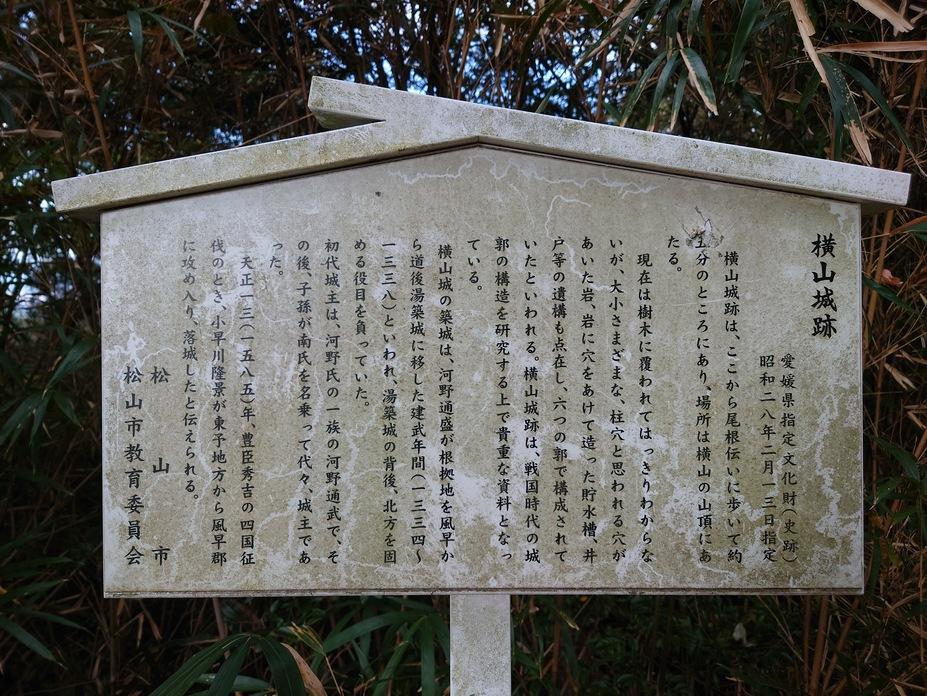 横山城跡
愛媛県指定文化財(史跡)
昭和二八年二月一三日指定
横山城跡は、ここから尾根伝いに歩いて約
五分のところにあり、場所は横山の山頂にあ
たる。
現在は樹木に覆われてはっきりわからな
いが、大小さまざまな、柱穴と思われる穴が
あいた岩、岩に穴をあけて造った貯水槽、井
戸等の遺構も点在し、六つの郭で構成されて
いたといわれる。横山城跡は、戦国時代の城
郭の構造を研究する上で貴重な資料となっ
ている。
横山城の築城は、河野通盛が根拠地を風早か
ら道後湯築城に移した建武年間(一三三四〜
一三三八)といわれ、湯築城の背後、北方を固
める役目を負っていた。
初代城主は、河野氏の一族の河野通武で、そ
の後、子孫が南氏を名乗って代々、城主であ
った。
天正一三(一五八五)年、豊臣秀吉の四国征
伐のとき、小早川隆景が東予地方から風早郡
に攻め入り、落城したと伝えられる。
松山市
松山市教育委員会